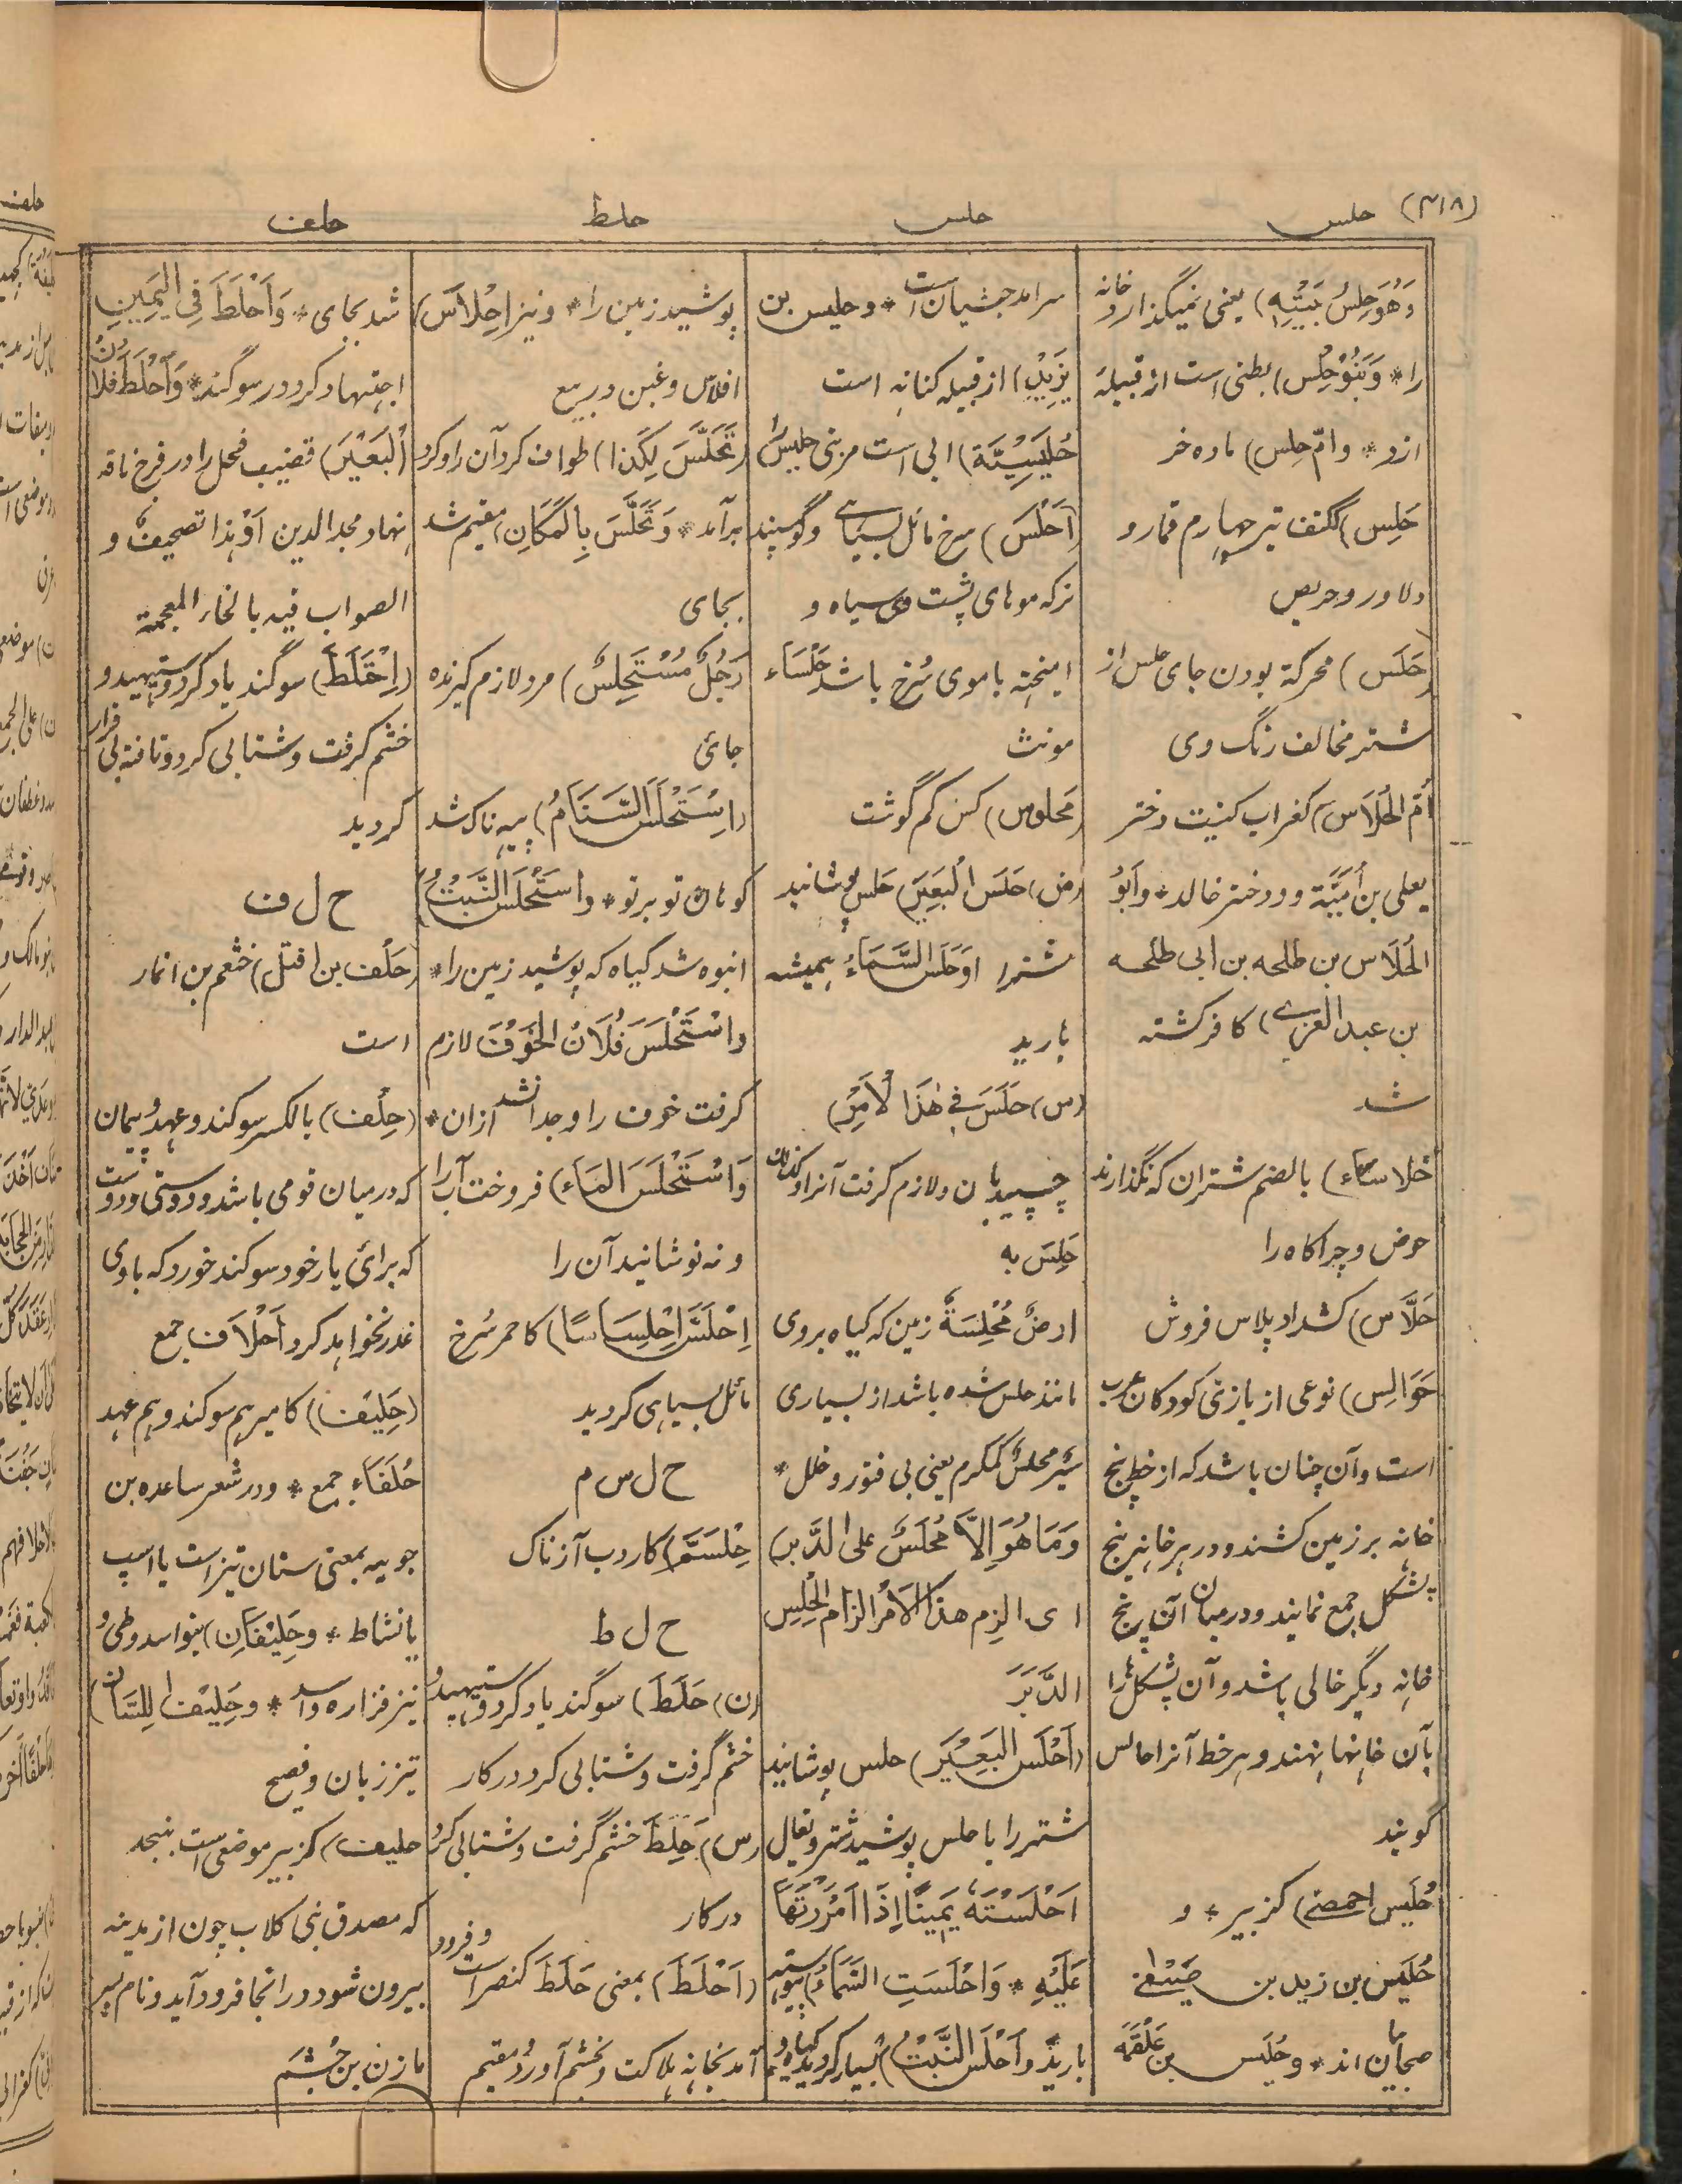 (۳۱۸) حلس
حلس
حلط
حلف
وَهُوَ حِلسُ بَیتِهٖ) یعنی نمیگذارد خانه
را * وَبَنُوحِلْس) بطنی است از قبیله
ازد * وامّ حِلس) ماده خر
حَلِس) ککتف تیر چهارم قمار و
دلاور و حریص
(حَلَس) محرکة بودن جای حلس از
شتر مخالف رنگ وی
اُمّ الحُلَاس) کغراب کنیت دختر
یعلی بن اُمَیَّة و دختر خالد * واَبُو
الحُلَاس بن طلحه بن ابی طلحه
بن عبد العزے) کافر کشته
شد
حُلاساء) بالضم شتران که نگذارند
حوض و چراگاه را
حَلَّاس) کشداد پلاس فروش
حَوَالِس) نوعی از بازی کودکان عرب
است وآن چنان باشد که از خط پنج
خانه بر زمین کشند و در هر خانه پنج
پشکل جمع نمایند و درمیان آن پنج
خانه دیگر خالی باشد وآن پشکل را
بآن خانها نهند و هر خط آنرا حالس
گویند
حُلَیس احمصی) کزبیر * و
حُلَیس بن زید بن صیفی
صحابیان اند * وحُلَیس بن عَلْقَمَة
سرآمد حبشیان است * وحلیس بن
یَزِیْد) از قبیله کنانه است
حُلَیسِیَّة) آبی است مر بنی حلیس را
(اَحْلَس) سرخ مائل بسیاهے وگوسپند
نرکه موهای پشت وی سیاه و
آمیخته با موی سُرخ باشد حَلْسَاء
مونث
(مَحلوس) کس کم گوشت
(ض) حَلَسَ البَعِیرَ) حلس پوشانید
شتر را وحَلَسَ السَّمَاءُ همیشه
بارید
(س) حَلِسَ فِی هٰذَا الْاَمْرِ)
چسپید بآن ولازم گرفت آنرا وکذلک
حَلِسَ به
ارضٌ مُحْلِسَةٌ زمین که گیاه بروی
مانند حلس شده باشد از بسیاری
سَیْرٌ مُحلَسٌ کمکرم یعنی بی فتور وخلل *
وَمَا هُوَ اِلَّا مُحْلَسٌ علی الدَّبر)
ای الزم هذا الاَمْر الزام الحِلِس
الدَّبَرَ
(اَحْلَسَ البَعِیْرَ) حلس پوشانید
شتر را با حلس پوشید شتر ویقال
اَحْلَسْتُهُ یَمِیناً اِذَا اَمْرَرْتَهَا
عَلَیْهِ * وَاَحْلَسَتِ السَّمَاءُ) پیوسته
بارید واَحْلَسَ النَّبْتُ) بسیار گردید گیاه و
پوشید زمین را * ونیز اِحْلاَس)
افلاس وغبن در بیع
(تَحَلَّسَ لِکَذا) طواف کرد آن را وگرد
برآمد * وَتَحَلَّسَ بِالمَکَانِ) مقیم شد
بجای
رَجُلٌ مُسْتَحلِسٌ) مرد لازم گیرنده
جائی
(اِسْتَحْلَسَ السَّنَامُ) پیه ناک شد
کوهان تو بر تو * واستَحْلَسَ النَّبْتُ)
انبوه شد گیاه که پوشید زمین را *
واسْتَحْلَسَ فُلَانُ الخَوْفَ لازم
گرفت خوف را وجدا نشد ازان *
وَاسْتَحْلَسَ المَاءَ) فروخت آب را
ونه نوشانید آن را
اِحْلَسَّ اِحْلِسَاساً) کاحمر سُرخ
مائل بسیاہی گردید
ح ل س م
حِلْسَمّ) کاردب آزناک
ح ل ط
(ن) حَلَطَ) سوگند یاد کرد وستیهید و
خشم گرفت وشتابی کرد درکار
(س) حَلِطَ خشم گرفت وشتابی کرد
درکار
(اَحْلَطَ) بمعنی حَلَطَ کنصر است وفرود
آمد بخانه هلاکت وبخشم آورد ومقیم
شد بجای * وَاَحْلَطَ فِی الیَمِینِ
اجتهاد کرد در سوگند * وَاَحْلَطَ فُلانٌ
اْلبَعِیْرَ) قضیب فحل را در فرج ناقه
نهاد مجد الدین اَوْ هٰذا تصحیفٌ و
الصواب فیه بالخاء المعجمة
(اِحْتَلَطَ) سوگند یاد کرد وستیهید و
خشم گرفت وشتابی کرد وتافته بی قرار
گردید
ح ل ف
(حَلْف بن افتل) خثعم بن انمار
است
(حِلْف) بالکسر سوکند وعهد و پیمان
که درمیان قومی باشد و دوستی ودوست
که برائ یار خود سوکند خورد که باوی
غدر نخواهد کرد اَحْلاَف جمع
(حَلِیْف) کامیر هم سوکند وہم عہد
حُلَفَاء جمع * ودر شعر ساعده بن
جویه بمعنی سنان تیز است یا اسپ
بانشاط * وحَلِیْفَانِ) بنو اسد وطی و
نیز فزاره واسد * وحَلِیْف اللِّسَان)
تیز زبان وفصیح
حلیف) کزبیر موضعی است بنجد
که مصدق بنی کلاب چون از مدینه
بیرون شود در انجا فرود آید ونام پسر
مازن بن جُشَم